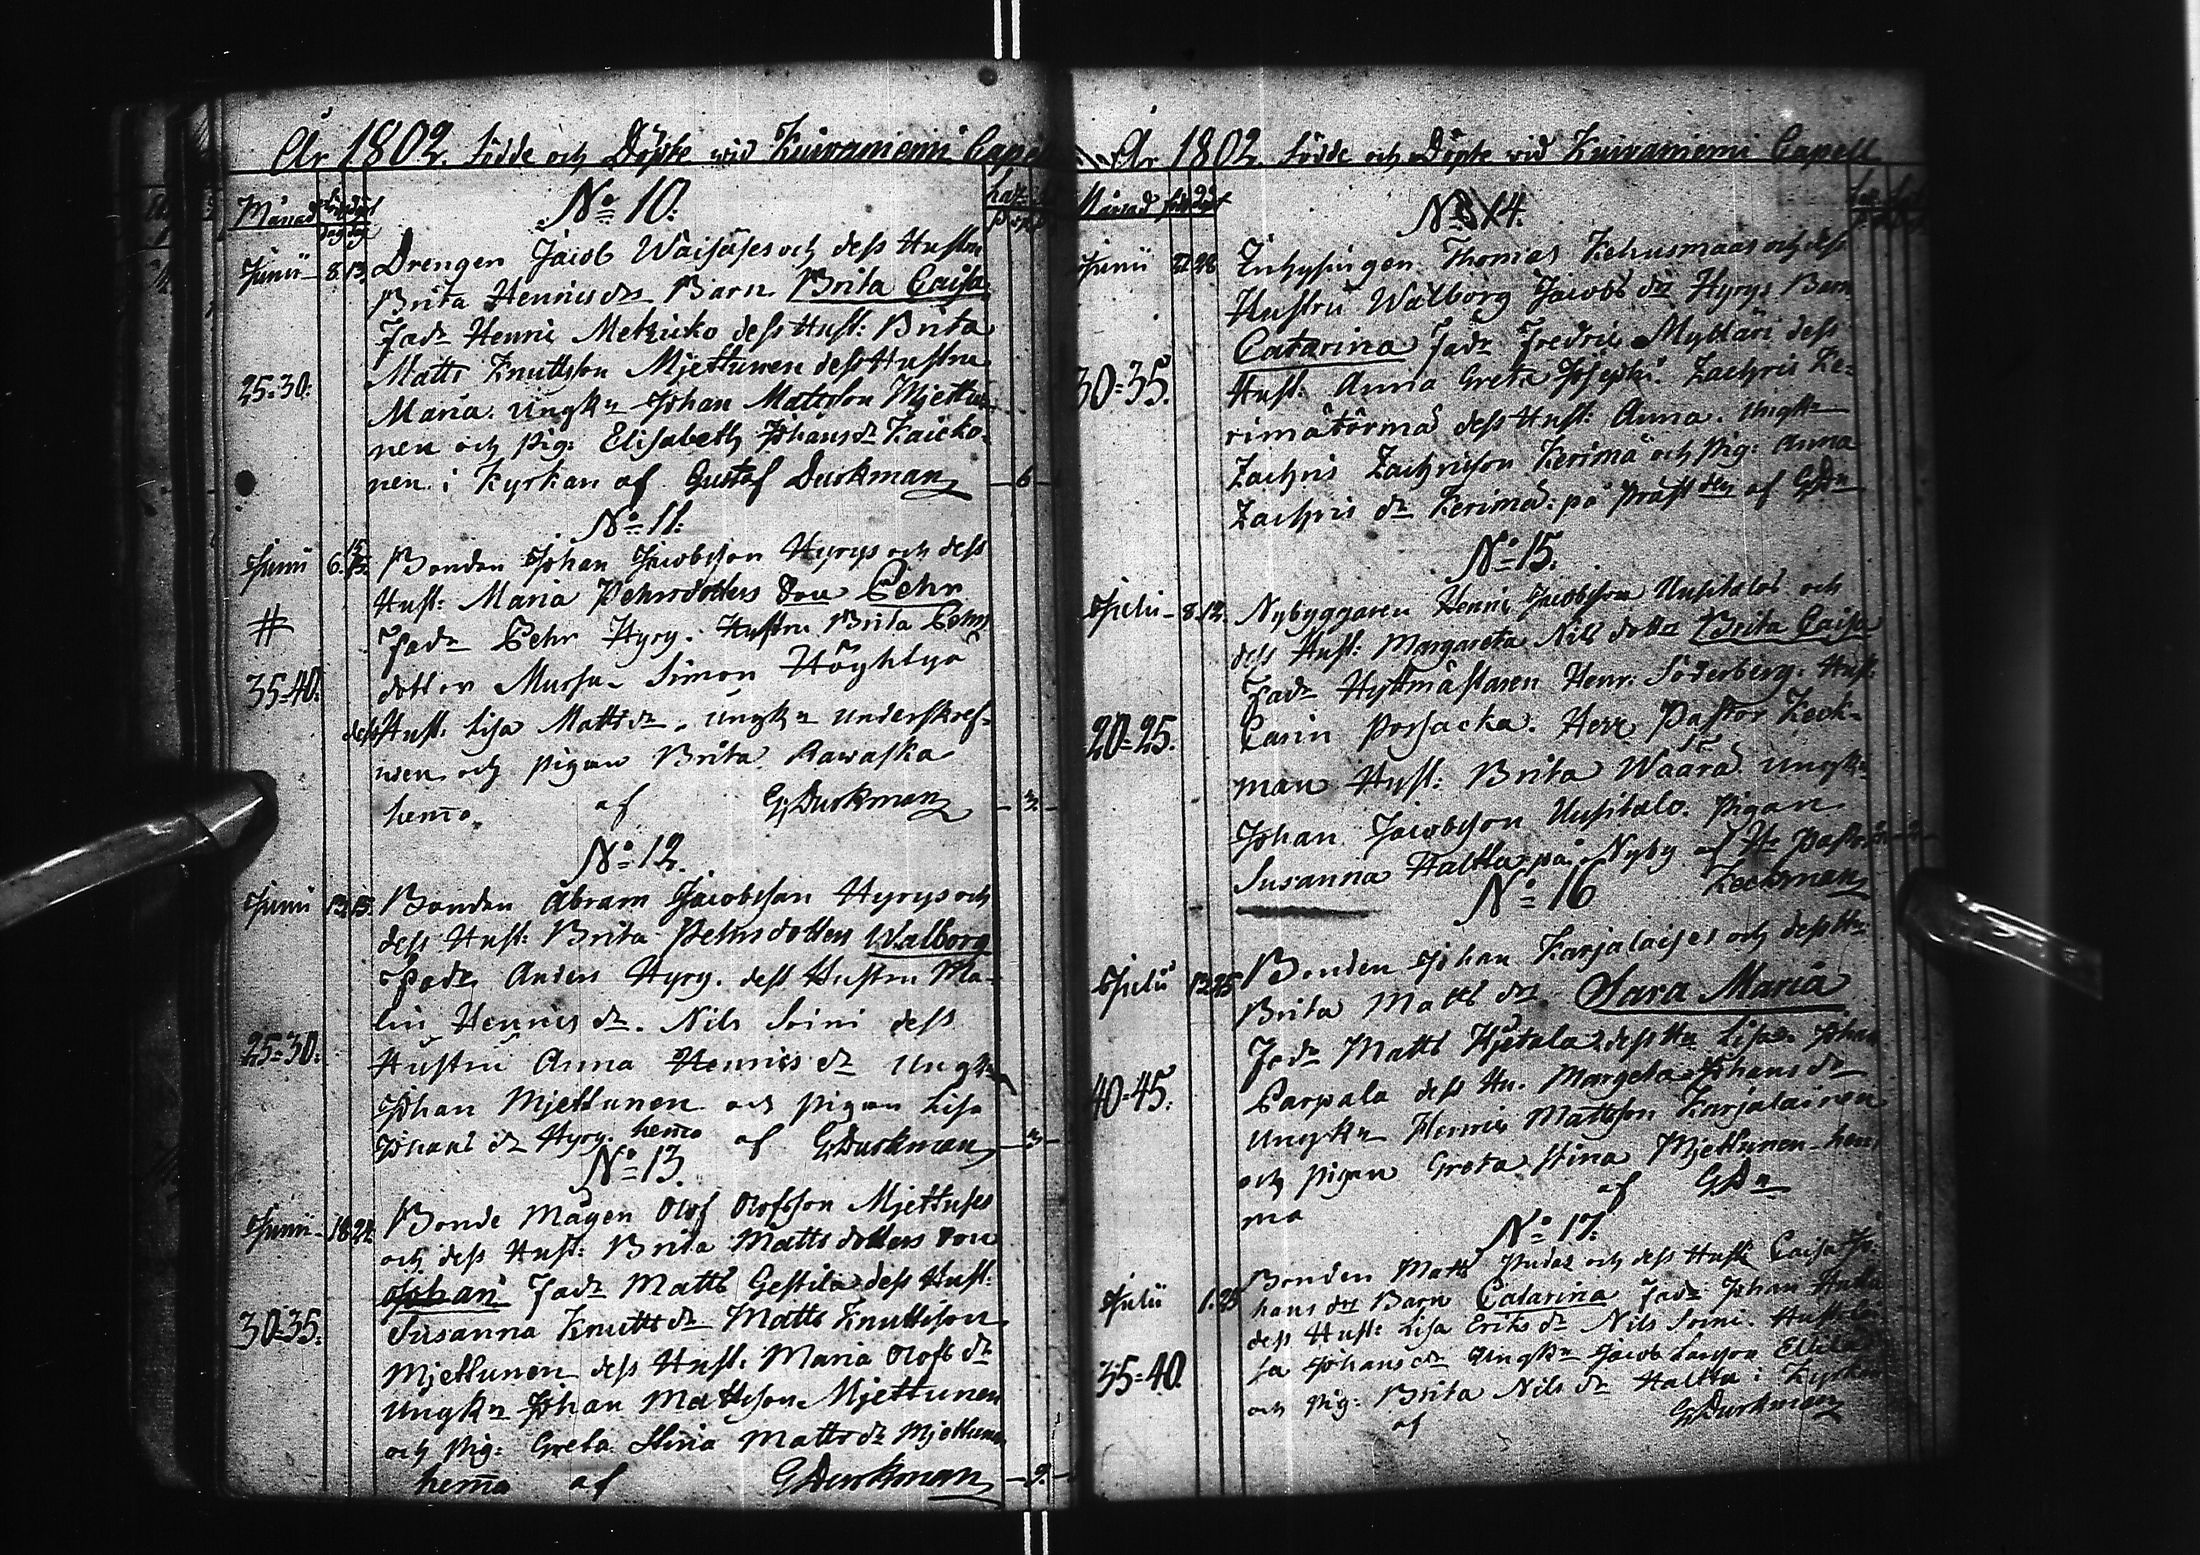 År 1802. Födde och Döpte wid Kuivaniemi Capell
Månad
No 10.
Junii 8. 13. Drengen Jacob Wäisäses och dess Hustru
Brita Henricsdrs Barn Brita Caisa
Fadr Henric Metzicko dess Hust: Brita
Matts Knuttsson Mjettunen dess Hustru
25=30. Maria. Ungkn Johan Mattsson Mjettu-
nen och Pig: Elisabeth Johansdr Kaicko-
nen i Kyrkan af Gustaf Durkman 6
No 11.
Junii 6. Bonden Johan Jacobsson Hyrys och dess
Hust: Maria Pehrsdotters Son Pehr
# Fadr Pehr Hyry. Hustru Brita Pehrs
35=40. dotter Mursu. Simon Höyhtyä
dess Hust: Lisa Mattsdr. Ungkn Underskref-
wen och Pigan Brita Rawaska
hema af GDurkman 3.
No 12.
Junii 13. 15. Bonden Abram Jacobsson Hyrys och
dess Hust: Brita Pehrsdotters Walborg
Fadr Anders Hyry. dess Hustru Ma-
lin Henricsdr. Nils Soini dess
25=30. Hustru Anna Henricsdr Ungkn
Johan Mjettunen och Pigan Lisa
Johansdr Hyry. hema af GDurkman 3
No 13.
Junii 18. 24. Bonde Mågen Olof Olofsson Mjettuses
och dess Hust: Brita Mattsdotters Son
Johan Fadr Matts Gestila dess Hust:
30=35. Susanna Knuttsdr Matts Knuttsson
Mjettunen dess Hust. Maria Olofsdr
Ungkn Johan Mattsson Mjettunen
och Pig: Greta Stina Mattsdr Mjettunen
hema af GDurkman 9.
År 1802. Födde och Döpte wid Kuivaniemi Capell
Månad
No 14.
Junii Inhysingen Thomas Kehusmaas och dess
Hustru Walborg Jacobsdr Hyrys Barn
Catarina Fadr Fredric Mylläri dess
30=35. Hust: Anna Greta Josephi. Zachris Ke-
rimätörmä dess Hust: Anna. Ungkn
Zachris Zachrisson Kerimä och Pig: Anna
Zachrisdr Kerimä. på Präst af GDn
No 15.
Julii 8. 12. Nybyggaren Henric Jacobsson Uusitalos och
dess Hust: Margareta Nilsdotter Brita Caisa
Fadr Hyttmästaren Henr. Söderberg. Hust:
20=25. Carin Porsacka. Herr Pastor Keck-
man Hust: Brita Waara. Ungkn
Johan Jacobsson Uusitalo. Pigan
Susanna Haltta på Nyby af Hr Pastor
Keckman
No 16
Julii 12 25 Bonden Johan Karjalaises och dess Hu
Brita Mattsdrs Sara Maria
Fadr Matts Hjetala dess Hu Lisa. Johan
40=45. Parpala dess Hu. Margeta Johansdr
Ungkn Henric Mattsson Karjalainen
och Pigan Greta Stina Mjettunen hem
ma af GDn
No 17.
Julii 1. 25 Bonden Matts Pudas och dess Hust: Caisa Jo-
hansdrs Barn Catarina Fadr Johan
dess Hust: Lisa Eriksdr Nils Soini. Hust:
35=40. sa Johansdr Ungkn Jacob Larsson
och Pig: Brita Nilsdr Haltta i Kyrkan
af GDurkman